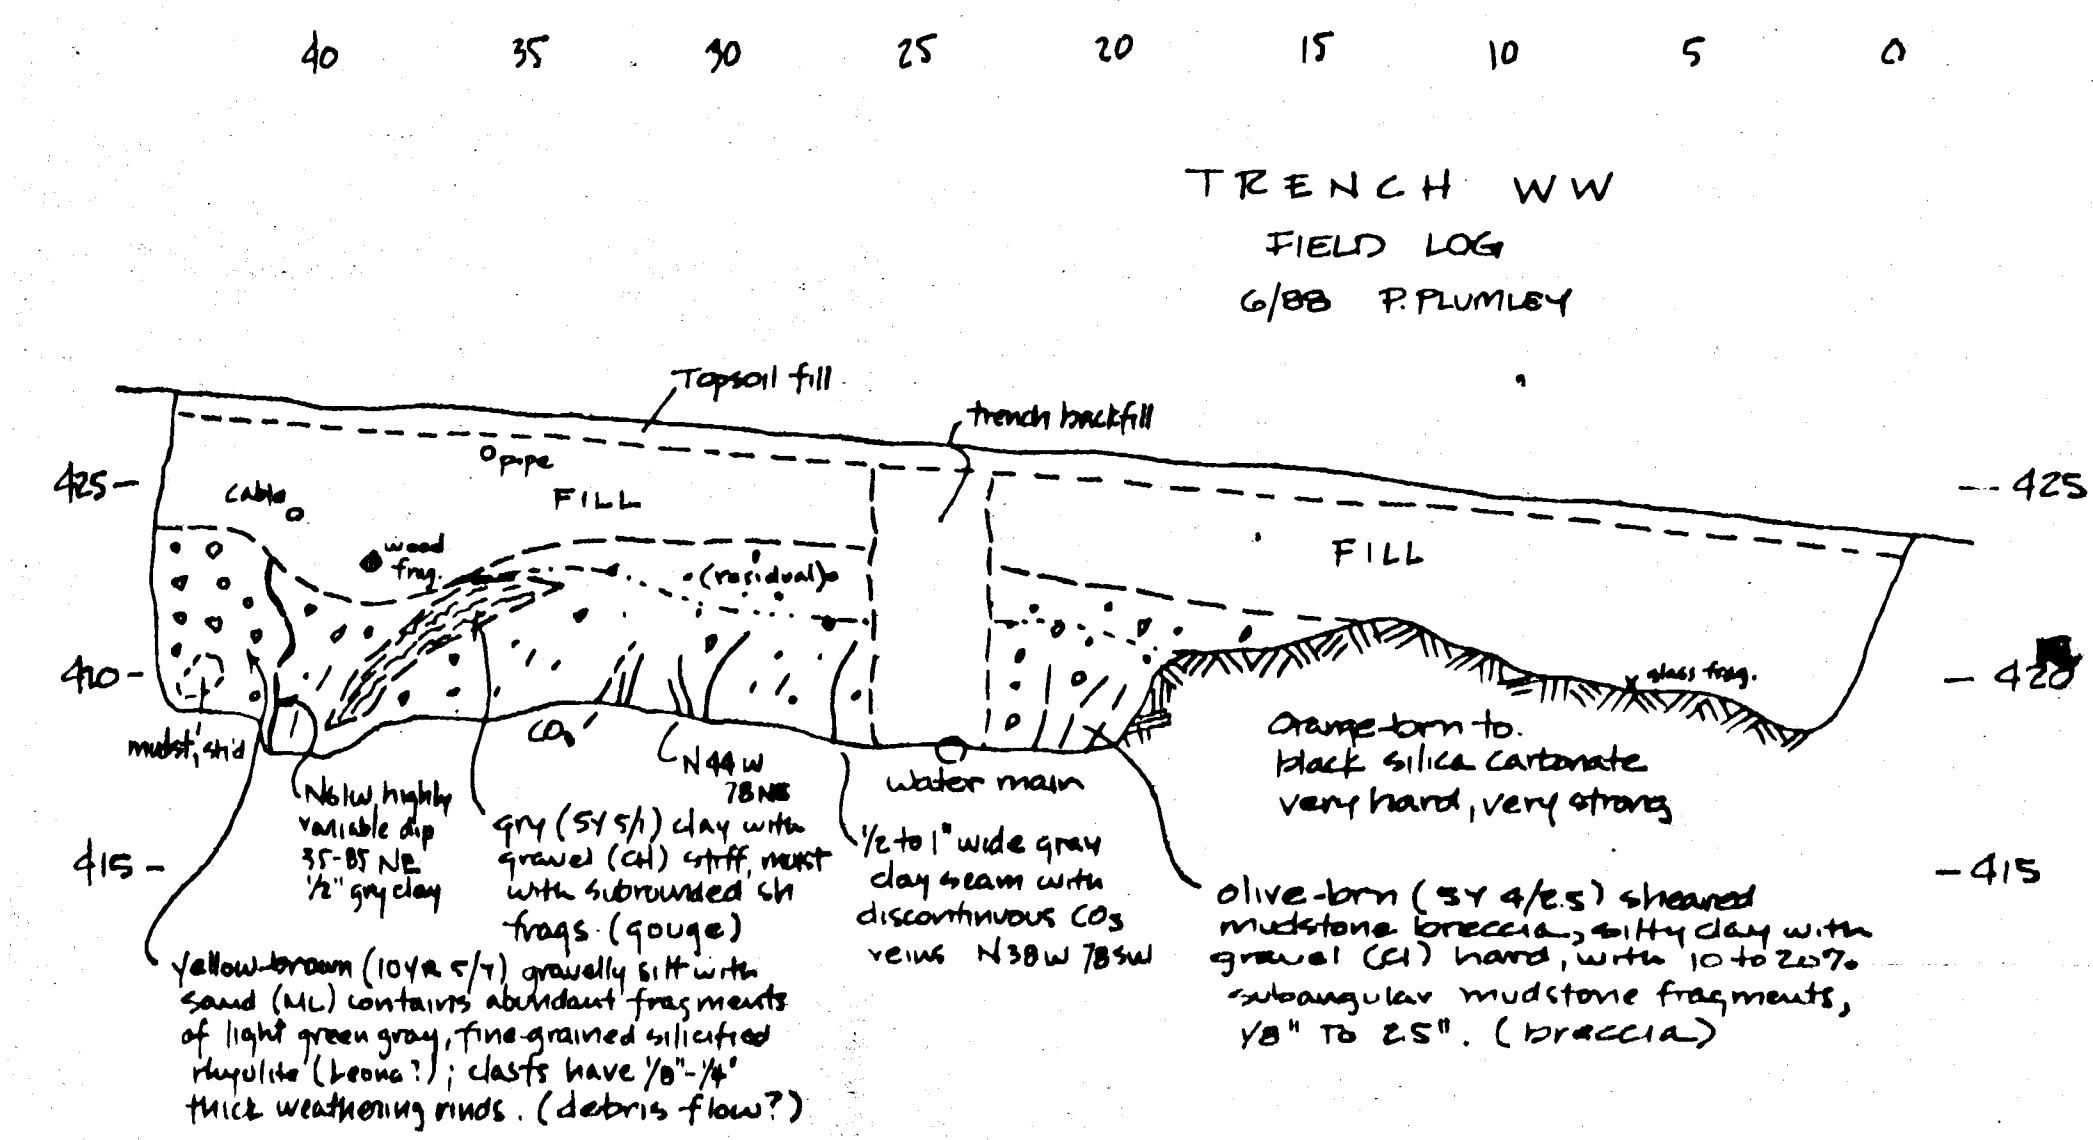 40 35 30 25 20 15 10 5 0
TRENCH WW
FIELD LOG
6/88 P. PLUMLEY
Topsoil fill
trench backfill
pipe
425
425
cable
FILL
FILL
wood
frag.
(residual)
420
420
glass frag.
mudst, sh'd
CO3
N44W
78NE
water main
Orange-brn to
black silica carbonate
very hard, very strong
N61W, highly
variable dip
35-85 NE
1/2" gry clay
gry (5Y 5/1) clay with
gravel (CH) stiff, moist
with subrounded sh
frags. (gouge)
1/2 to 1" wide gray
clay seam with
discontinuous CO3
veins N38W 78SW
415
415
olive-brn (5Y 4/2.5) sheared
mudstone breccia, silty clay with
gravel (Cl) hard, with 10 to 20%
subangular mudstone fragments,
1/8" TO 2.5". (breccia)
Yellow-brown (10YR 5/4) gravelly silt with
sand (ML) contains abundant fragments
of light green gray, fine-grained silicified
rhyolite (Leona?); clasts have 1/8"-1/4"
thick weathering rinds. (debris flow?)